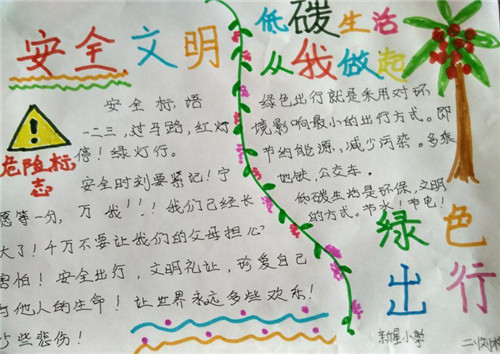 安全文明
安全标语
一二三，过马路，红灯
停！绿灯行。
危险标
志
安全时刻要紧记！宁
愿等一分，万 我！！！我们已经长
大了！千万不要让我们的父母担心
害怕！安全出行，文明礼让，珍爱自己
与他人的生命！让世界永远多些欢乐！
少些悲伤！
低碳生活
从我做起
绿色出行就是采用对环
境影响最小的出行方式。即
节约能源，减少污染。多乘
地铁，公交车。
低碳生活是环保，文明
的方式。节水！节电！
绿色
出行
新屋小学